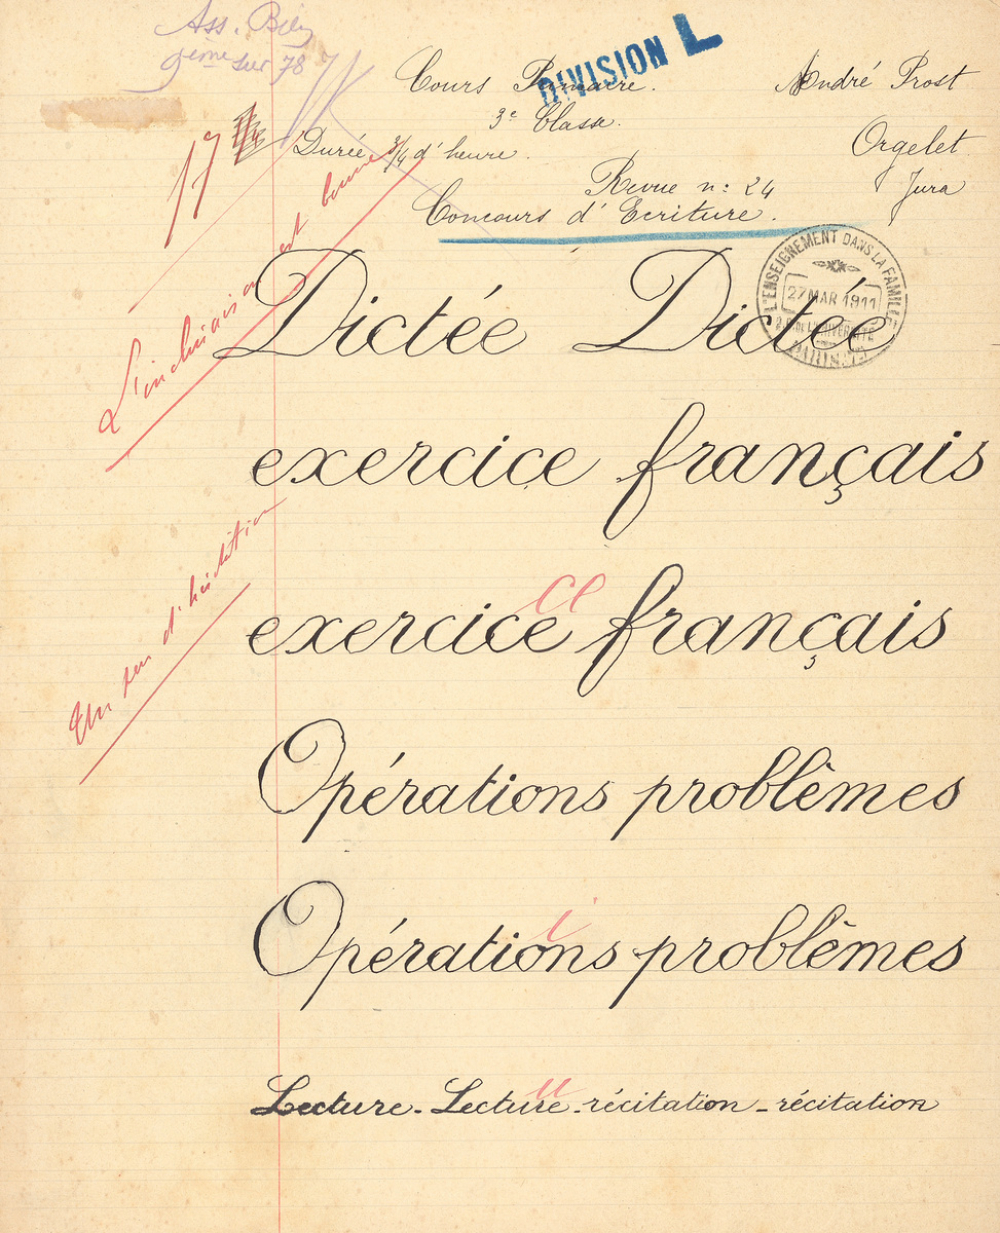 Ass. Bien
9ème sur 78
DIVISION L
Cours Primaire. André Prost
3e Classe.
17
Durée 3/4 d'heure. Orgelet
Revue n: 24 Jura
Concours d'Ecriture.
L'ENSEIGNEMENT DANS LA FAMILLE
27 MAR 1911
PARIS
L'inclinaison est bonne
Dictée Dictée
exercice français
Un peu d'hésitation
ce
exercice français
Opérations problèmes
i
Opérations problêmes
u
Lecture - Lecture - récitation - récitation